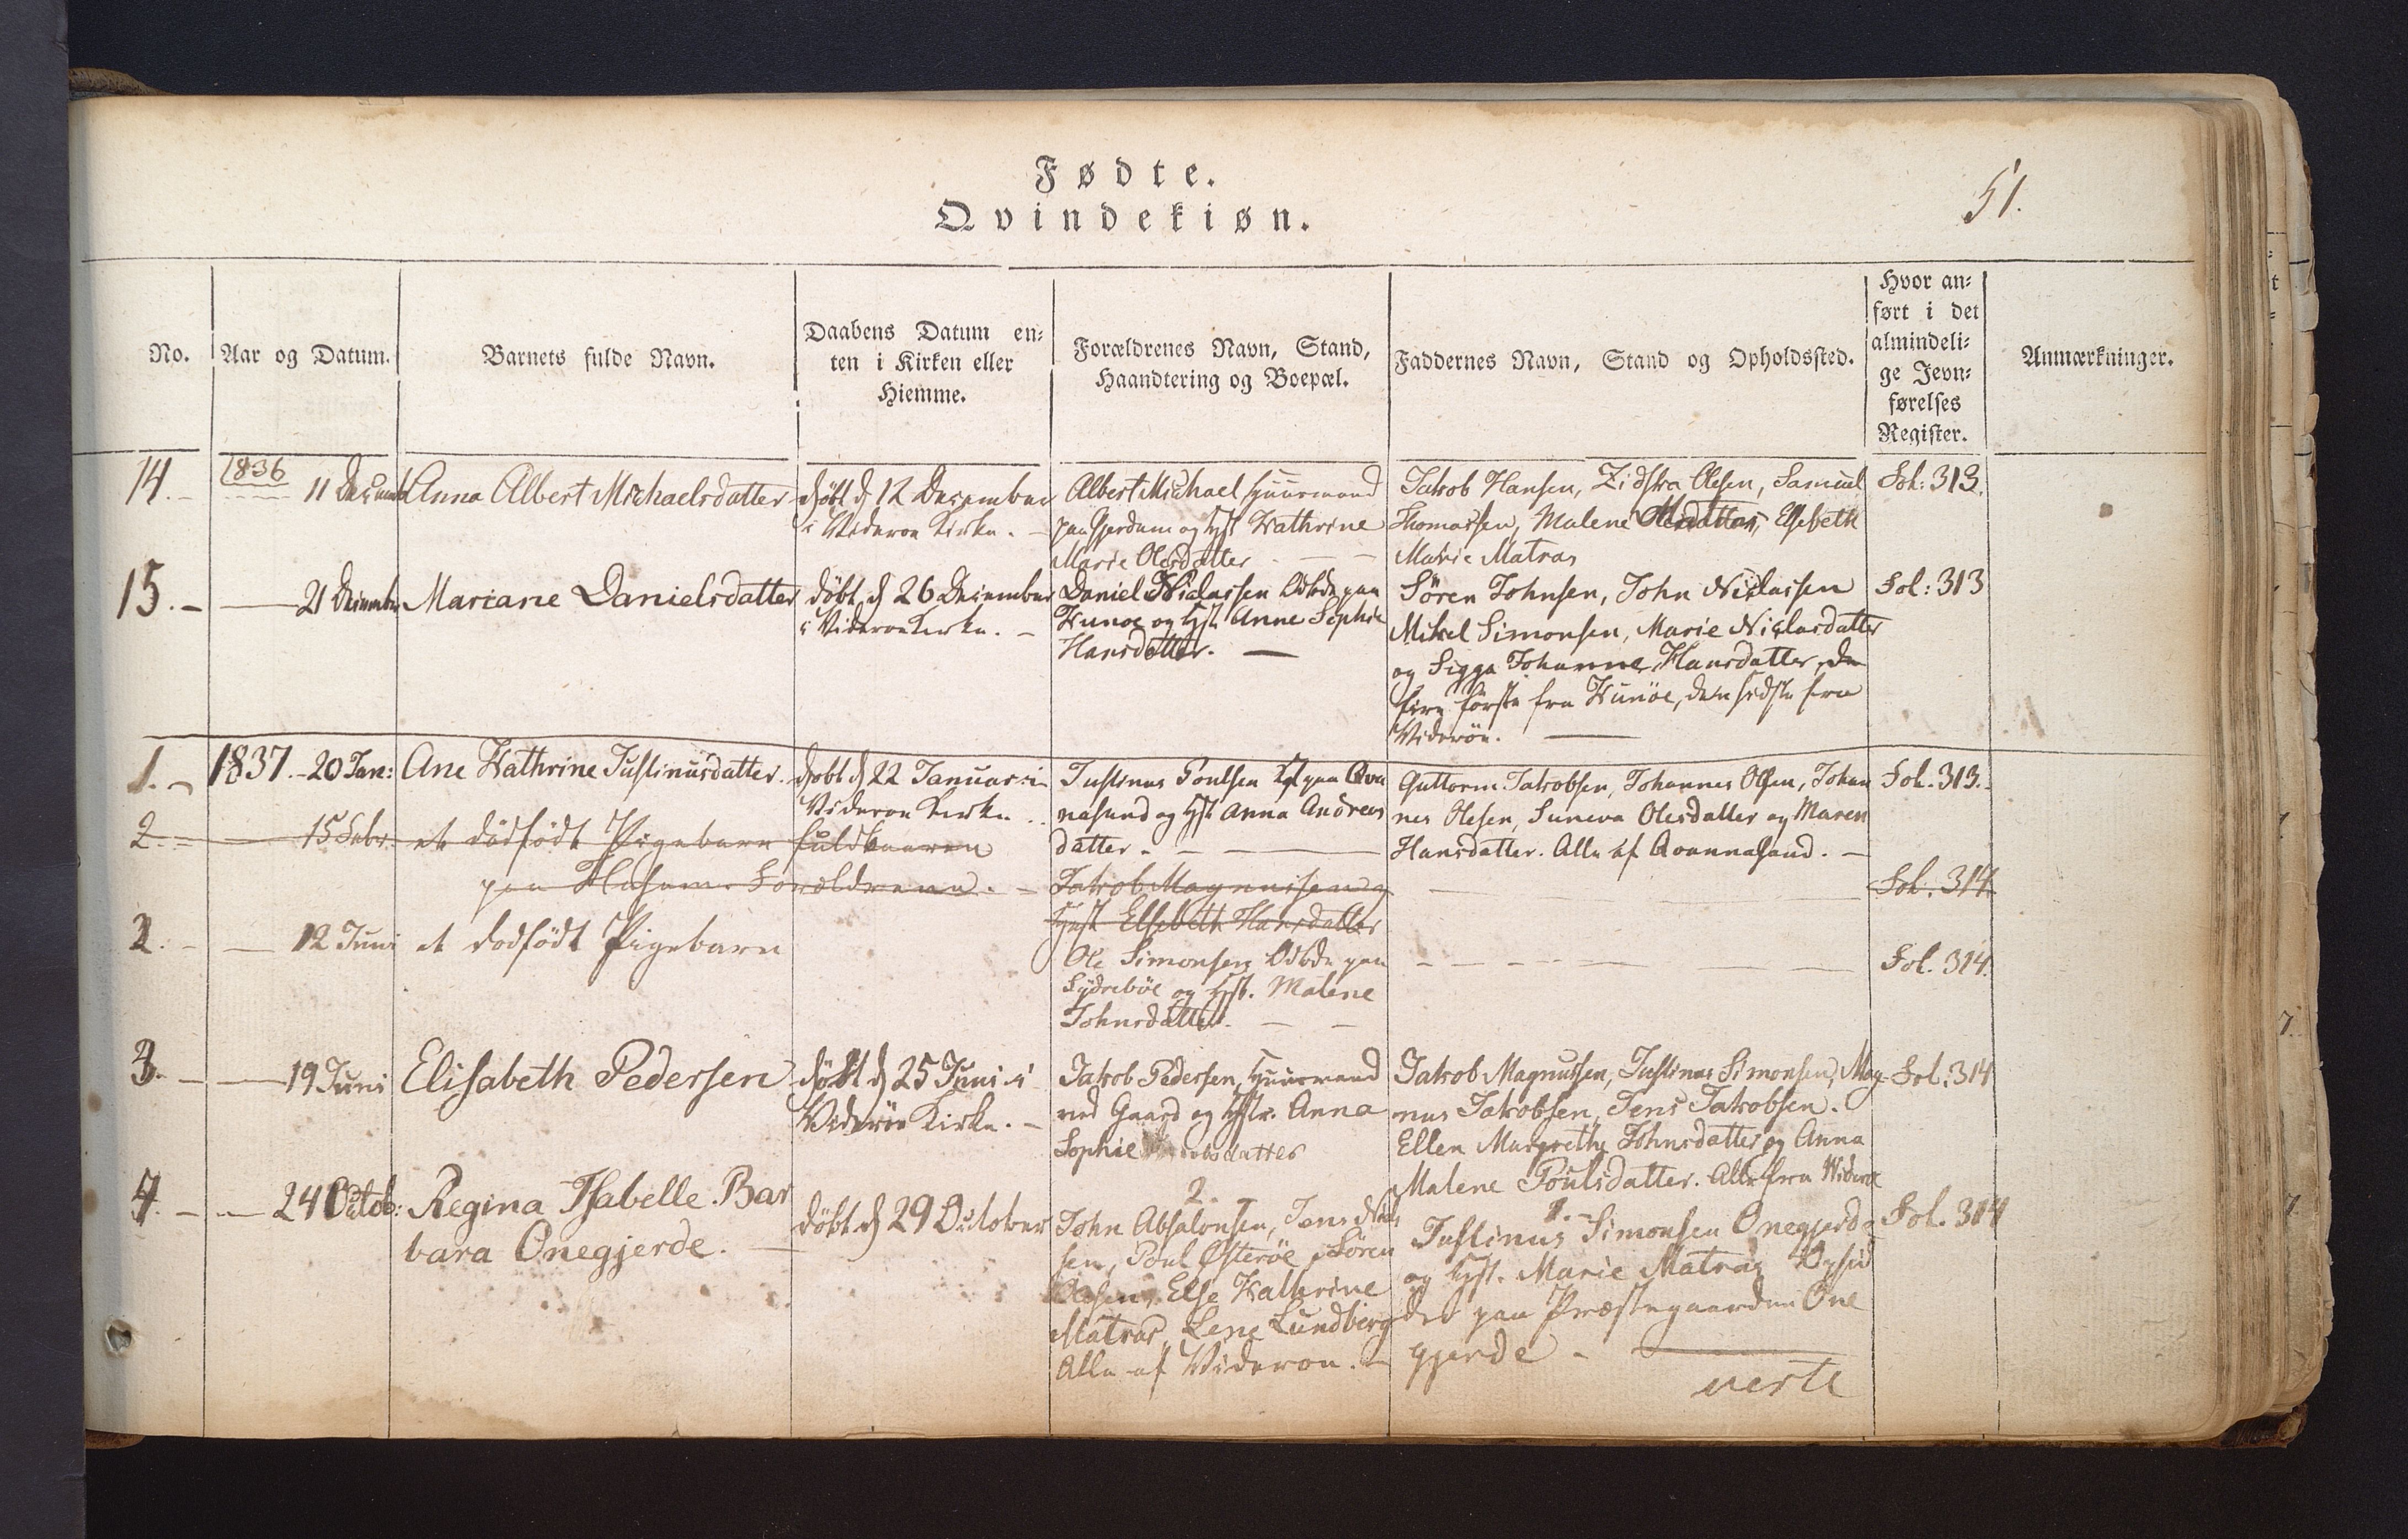 Fødte.
Qvindekiøn.
51.
No.
Aar og Datum.
Barnets fulde Navn.
Daabens Datum en-
ten i Kirken eller
Hiemme.
Forældrenes Navn, Stand,
Haandtering og Boepæl.
Faddernes Navn, Stand og Opholdssted.
Hvor an-
ført i det
almindeli-
ge Jevn-
førelses
Register.
Anmærkninger.
14.
1836
11 December
Anna Albert Michaelsdatter
døbt d 12 December
i Videroe Kirke.
Albert Michael Huusmand
paa og Hst Kathrine
Marie Olesdatter
Jakob Hansen, Olesen, Samuel
Thomassen, Malene Elsebeth
Marie Matras
Fol: 313.
15.
21 December
Mariane Danielsdatter
døbt d 26 December
i Videroe Kirke.
Daniel Niclassen Odbde paa
Kunoe og Hst. Anne Sophie
Hansdatter.
Søren Johnsen, John Niclassen
Mikel Simonsen, Marie Niclasdatter
og Sigga Johanne Hansdatter, de
fire første fra Kunöe, den sidste fra
Viderøe.
Fol: 313
1.
1837. 20 Jan:
Ane Kathrine Justinusdatter.
døbt d 22 Januar i
Videroe Kirke
Justinus Poulsen paa Qva
nasund og Hst Anna Andreas
datter.
Guttorm Jakobsen, Johannes Olsen, Johan
nes Olesen, Suneva Olesdatter og Maren
Hansdatter. Alle af Qvannasund.
Fol. 313.
2.
15 Febr.
et dødfødt Pigebarn fuldbaaren
paa Forældrene.
Jakob Magnussen og
Hst Elsebeth Hansdatter
Fol. 314
2.
12 Juni
et dødfødt Pigebarn
Ole Simonsen Odbde paa
Sydrebøe og Hst. Malene
Johnsdatter.
Fol. 314.
3.
19 Juni
Elisabeth Pedersen
døbt d 25 Juni i
Viderøe Kirke.
Jakob Pedersen, Huusmand
ved Gaard og Hstr. Anna
Sophie
Jakob Magnussen, Justinus Simonsen, Mag-
nus Jakobsen, Jens Jakobsen.
Ellen Margrethe Johnsdatter og Anna
Malene Poulsdatter. Alle fra Viderøe
Fol. 314
4.
24 Octob:
Regina Isabelle Bar
bara Onegjerde.
døbt d 29 October
2.
John Absalonsen, Jens Niel
sen, Poul Østerøe, Søren
Olesen, Else Kathrine
Matras, Lene Lundberg
Alle af Videroe.
1.
Justinus Simonsen Onegjerde
og Hst. Marie Matras
paa Præstegaarden One
gjerde
Fol. 314
verte